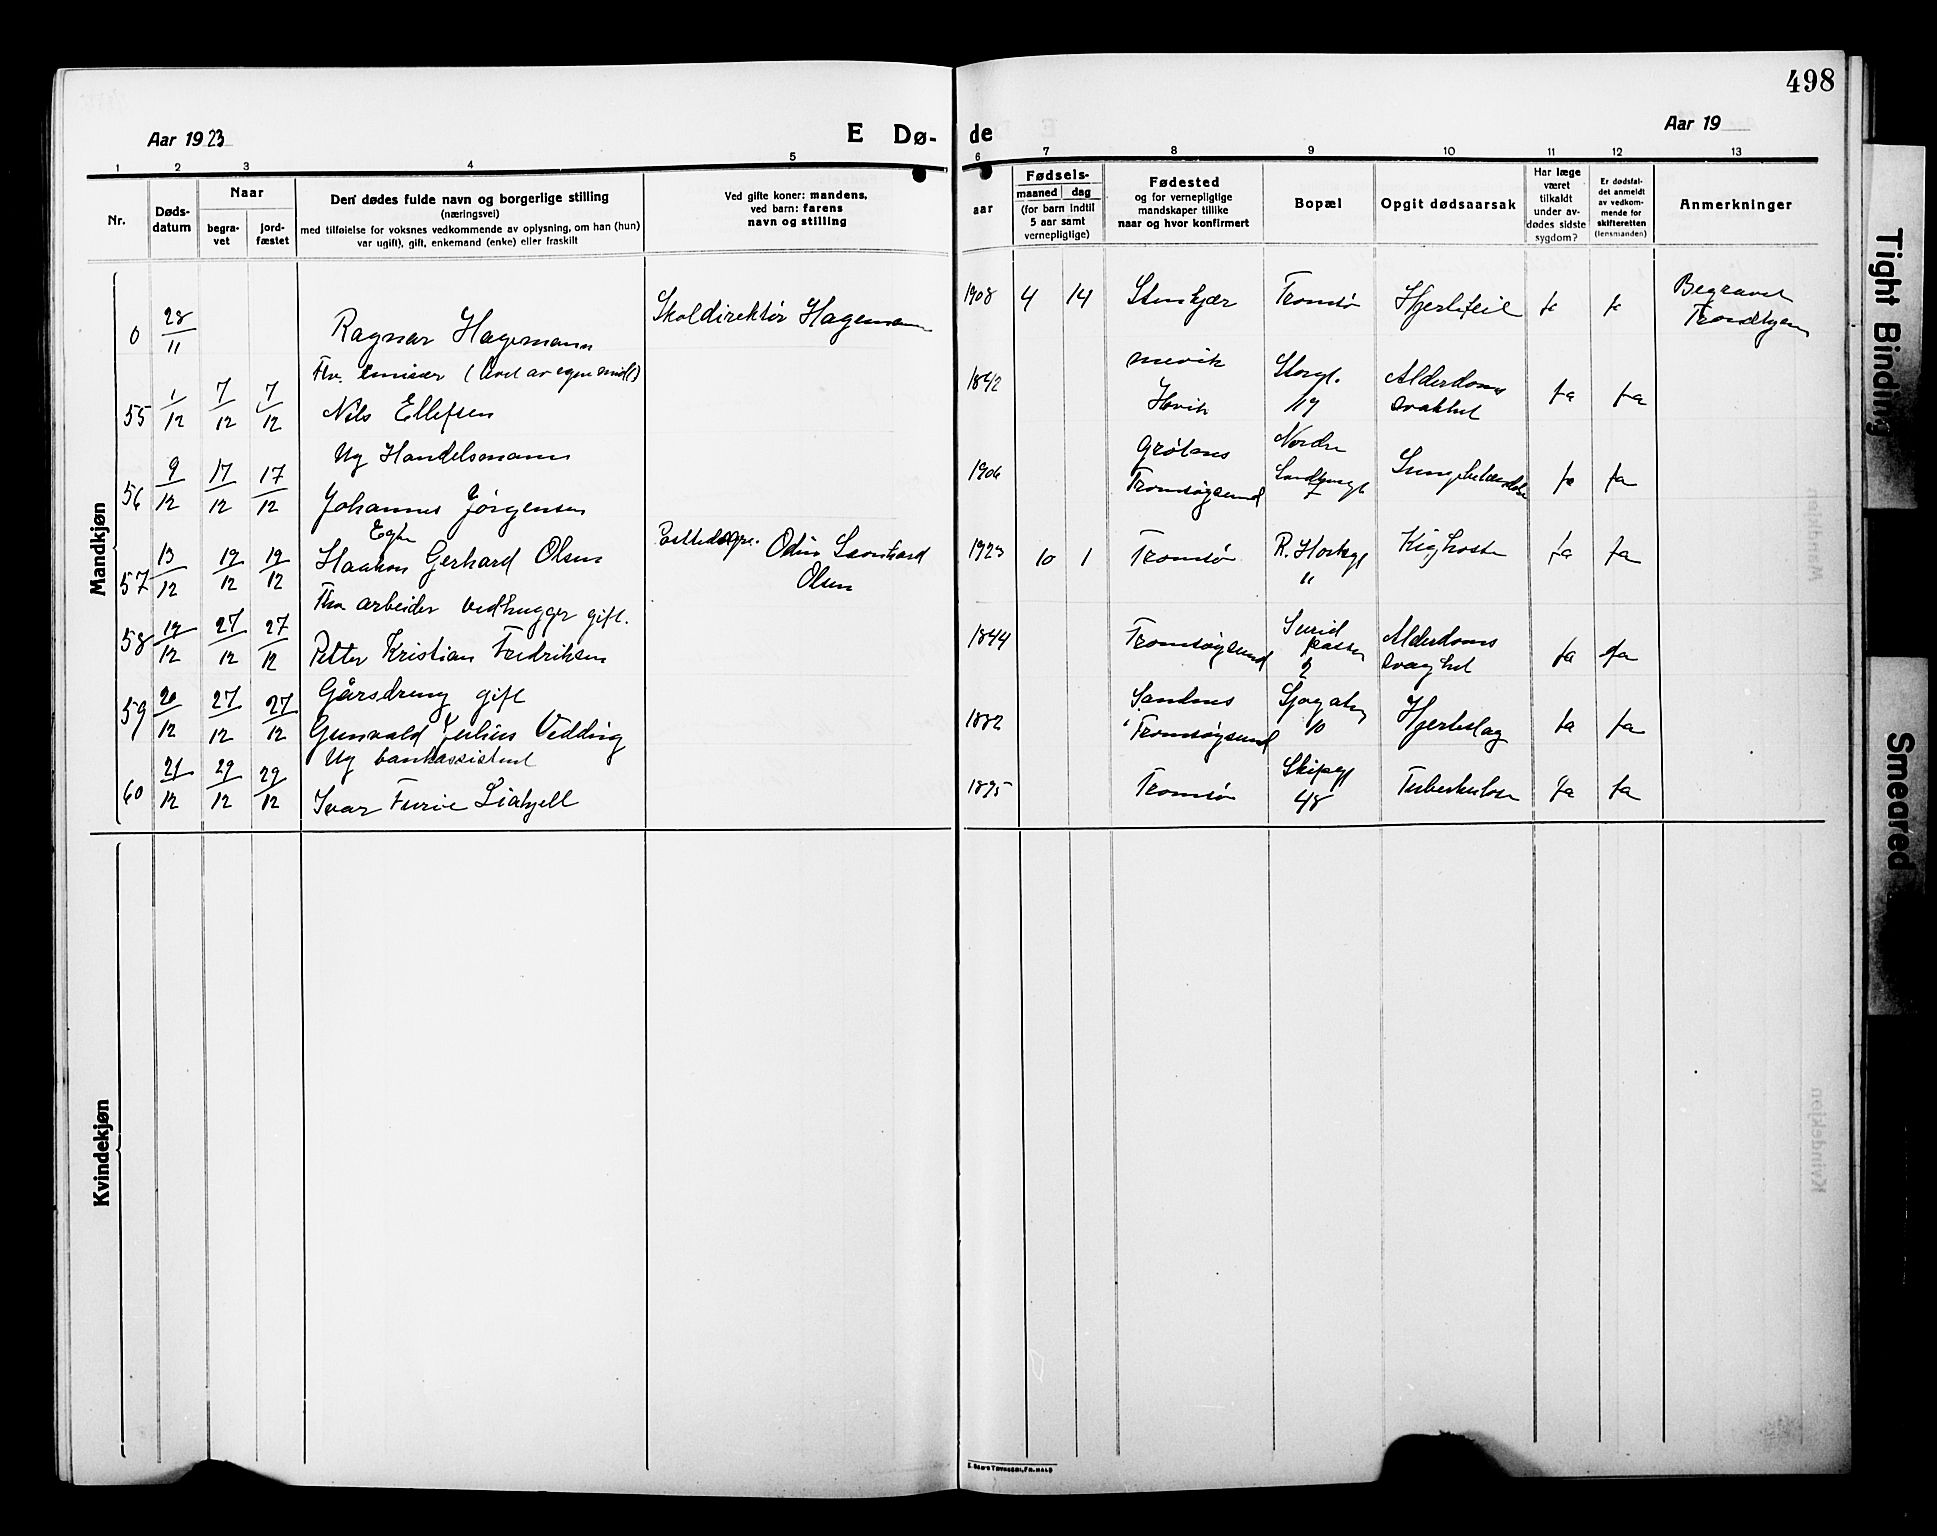 498
Aar 1923
E Dø-
de
Aar 19
1 2 3 4 5 6 7 8 9 10 11 12 13
Nr.
Døds-
datum
Naar
begra-
vet
jord-
fæstet
Den dødes fulde navn og borgerlige stilling
(næringsvei)
med tilføielse for voksnes vedkommende av oplysning, om han (hun)
var ugift), gift, enkemand (enke) eller fraskilt
Ved gifte koner: mandens,
ved barn: farens
navn og stilling
aar
Fødsels-
maaned dag
(for barn indtil
5 aar samt
vernepligtige)
Fødested
og for vernepligtige
mandskaper tillike
naar og hvor konfirmert
Bopæl
Opgit dødsaarsak
Har læge
været
tilkaldt
under av-
dødes sidste
sygdom?
Er dødsfal-
det anmeldt
av vedkom-
mende for
skifteretten
(lensmanden)
Anmerkninger
Mandkjøn
0 28/11 Ragnar Hagemann Skoldirektør Hagemann 1908 4 14 Stenkjær Tromsø Hjertefeil ja ja Begravet
Trondhjem
55 1/12 7/12 7/12 Fhv. emisær (levet av egne midl)
Nils Ellefsen 1842 Alderdoms
svakhet ja ja
56 9/12 17/12 17/12 Ug Handelsmann
Johannes Jørgensen 1906 Grøtnes
Tromsøysund Nordre ja ja
57 13/12 19/12 19/12 Egte
Haakon Gerhard Olsen Odin Leonhard
Olsen 1923 10 1 Tromsø Kighoste ja ja
58 19/12 27/12 27/12 Fhv arbeider vedhugger gift.
Petter Kristian Fredriksen 1844 Tromsøysund 2 Alderdoms
svaghet ja ja
59 20/12 27/12 27/12 Gårsdreng gift
Gunvald Julius Vedding 1882 Sandnes
i Tromsøysund Sjøgaten
10 Hjerteslag ja ja
60 21/12 29/12 29/12 Ug bankassistent
Ivar Furöe Liakjell 1895 Tromsø Skipsg
48 Tuberkulose ja ja
Kvindekjøn
Tight Binding
Smeared